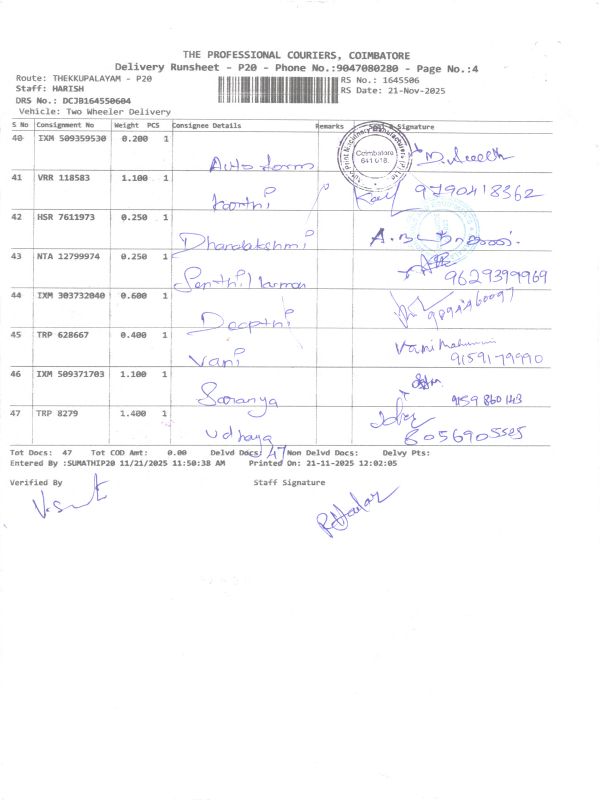 THE PROFESSIONAL COURIERS, COIMBATORE
Delivery Runsheet - P20 - Phone No.:9047080280 - Page No.:4
Route: THEKKUPALAYAM - P20
RS No.: 1645506
Staff: HARISH
RS Date: 21-Nov-2025
DRS No.: DCJB164550604
Vehicle: Two Wheeler Delivery
S No Consignment No Weight PCS Consignee Details Remarks Seal & Signature
40 IXM 509359530 0.200 1
Coimbatore
641 018.
41 VRR 118583 1.100 1
9790418362
42 HSR 7611973 0.250 1
Dhanalakshmi
43 NTA 12799974 0.250 1
Senthil Kumar 9629399969
44 IXM 303732040 0.600 1
Deepthi 9894460097
45 TRP 628667 0.400 1
Vani Vani
9159179990
46 IXM 509371703 1.100 1
Saranya 9159860143
47 TRP 8279 1.400 1
Udhaya 8056905505
Tot Docs: 47 Tot COD Amt: 0.00 Delvd Docs: 47 Non Delvd Docs: Delvy Pts:
Entered By :SUMATHIP20 11/21/2025 11:50:38 AM Printed On: 21-11-2025 12:02:05
Verified By Staff Signature